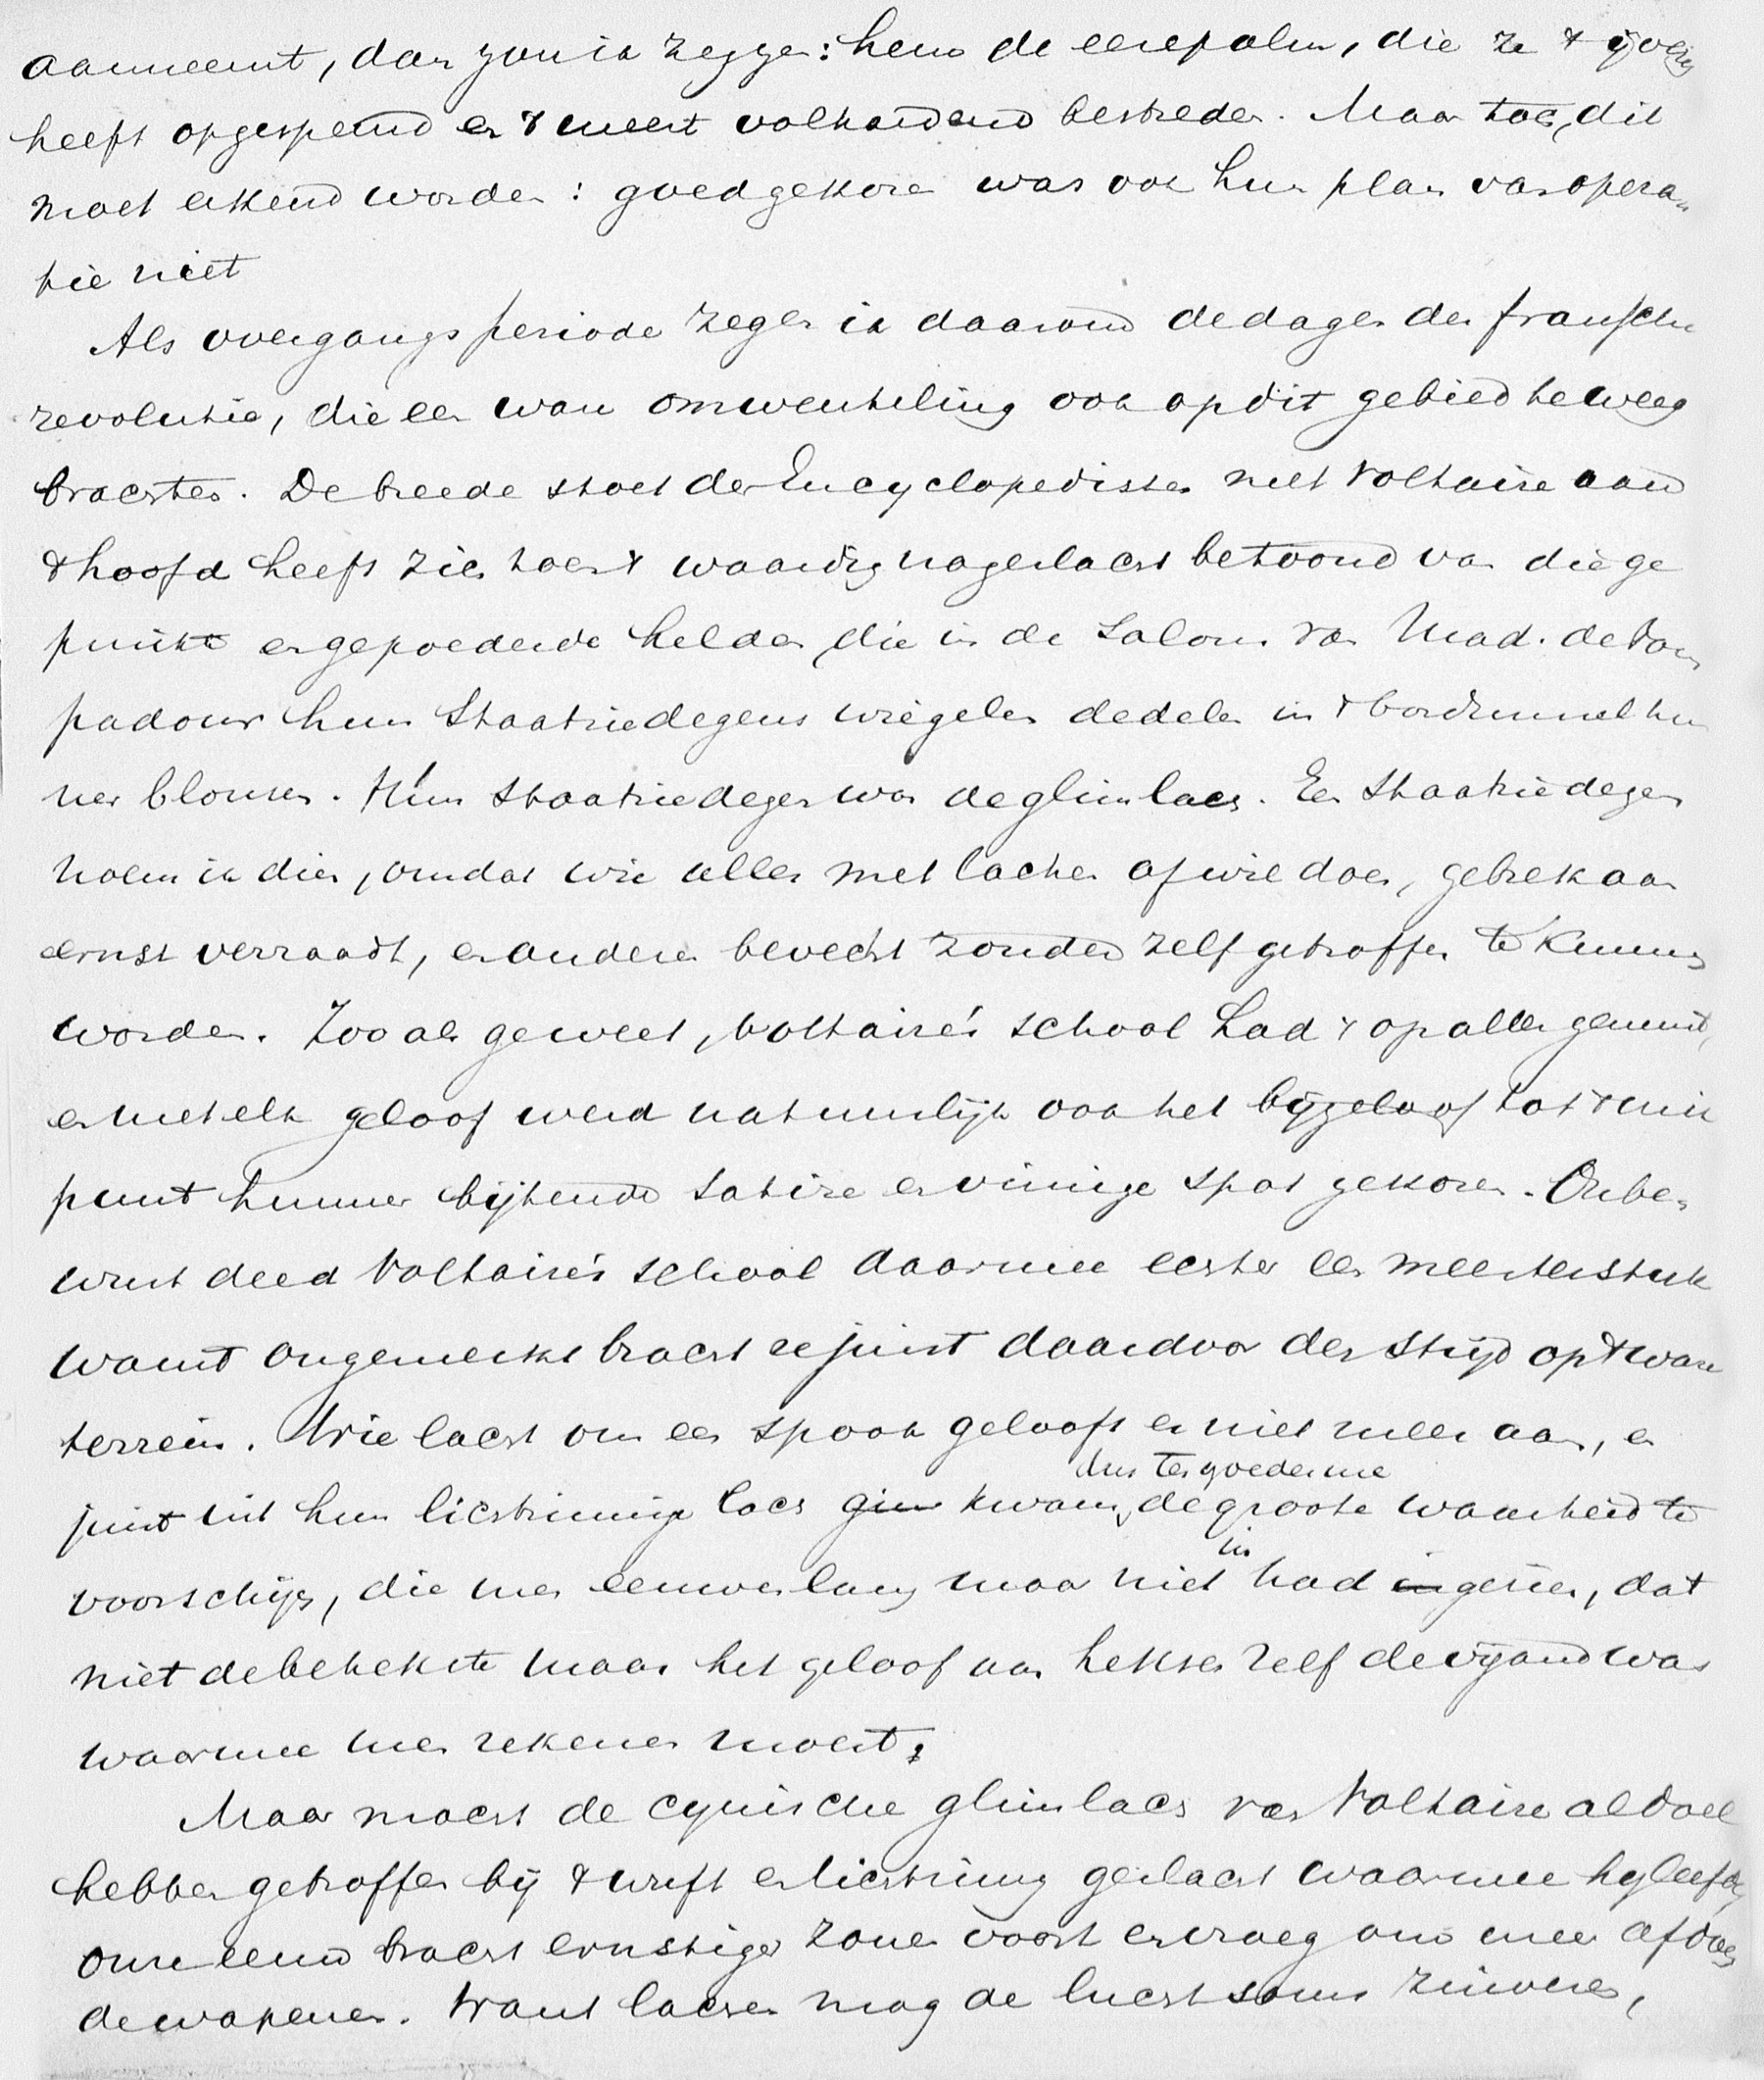 aanneemt, dan zou ik zeggen: hem de eerepalm, die ze 't ijverig
heeft opgespeurd en 't meest volhardend bestreden. Maar toch, dit
moet erkend worden: goedgekozen was ook hun plan van opera„
tie niet
Als overgangsperiode zegen ik daarom de dagen der fransche
revolutie, die een ware omwenteling ook op dit gebied te weeg
brachten. De breede stoet der Encyclopedisten met Voltaire aan
't hoofd heeft zich toen 't waardig nageslacht betoond van die ge
puikte en gepoederde helden, die in de Salons van Mad. de Pom
padour hun Staatsiedegens wiegelen deden in 't borduursel hun
ner blouses. Hun staatsiedegen was de glimlach. Een Staatsiedegen
noem ik dien, omdat wie alles met lachen af wil doen, gebrek aan
ernst verraadt, en anderen bevecht zonder zelf getroffen te kunnen
worden. Zooals ge weet, Voltaire's school had 't op alles gemunt,
en met elk geloof werd natuurlijk ook het bijgeloof tot 't mik
punt hunner bijtende satire en vinnige spot gekozen. Onbe„
wust deed Voltaire's school daarmee echter een meesterstuk
want ongemerkt bracht ze juist daardoor den strijd op 't ware
terrein. Wie lacht om een spook gelooft er niet meer aan, en
juist uit hun lichtzinnige lach kwam dus ten goede mee de groote waarheid te
voorschijn, die men eeuwen lang maar niet in had gezien, dat
niet de behekste maar het geloof aan heksen zelf de vijand was
waarmee men rekenen moest.
Maar mocht de cynische glimlach van Voltaire al doel
hebben getroffen bij 't wuft en lichtzinnig geslacht waarmee hij leefde,
onze eeuw bracht ernstiger zonen voort en vroeg om meer afdoen
de wapenen. Want lachen mag de lucht soms zuiveren,